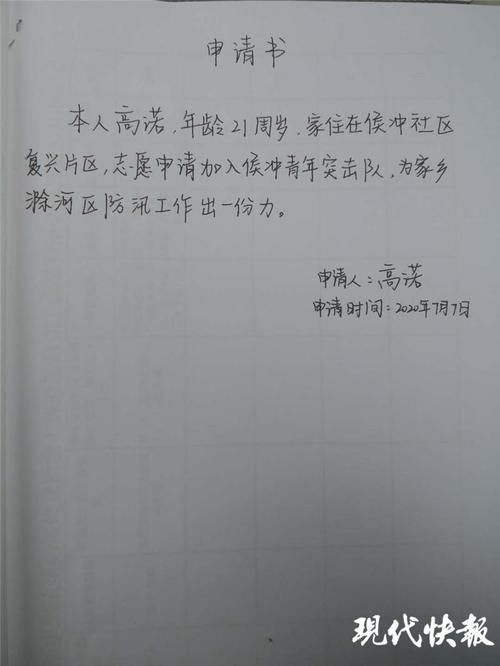 申请书
本人高诺，年龄21周岁，家住在侯冲社区
复兴片区，志愿申请加入侯冲青年突击队，为家乡
滁河区防汛工作出一份力。
申请人：高诺
申请时间：2020年7月7日
现代快报